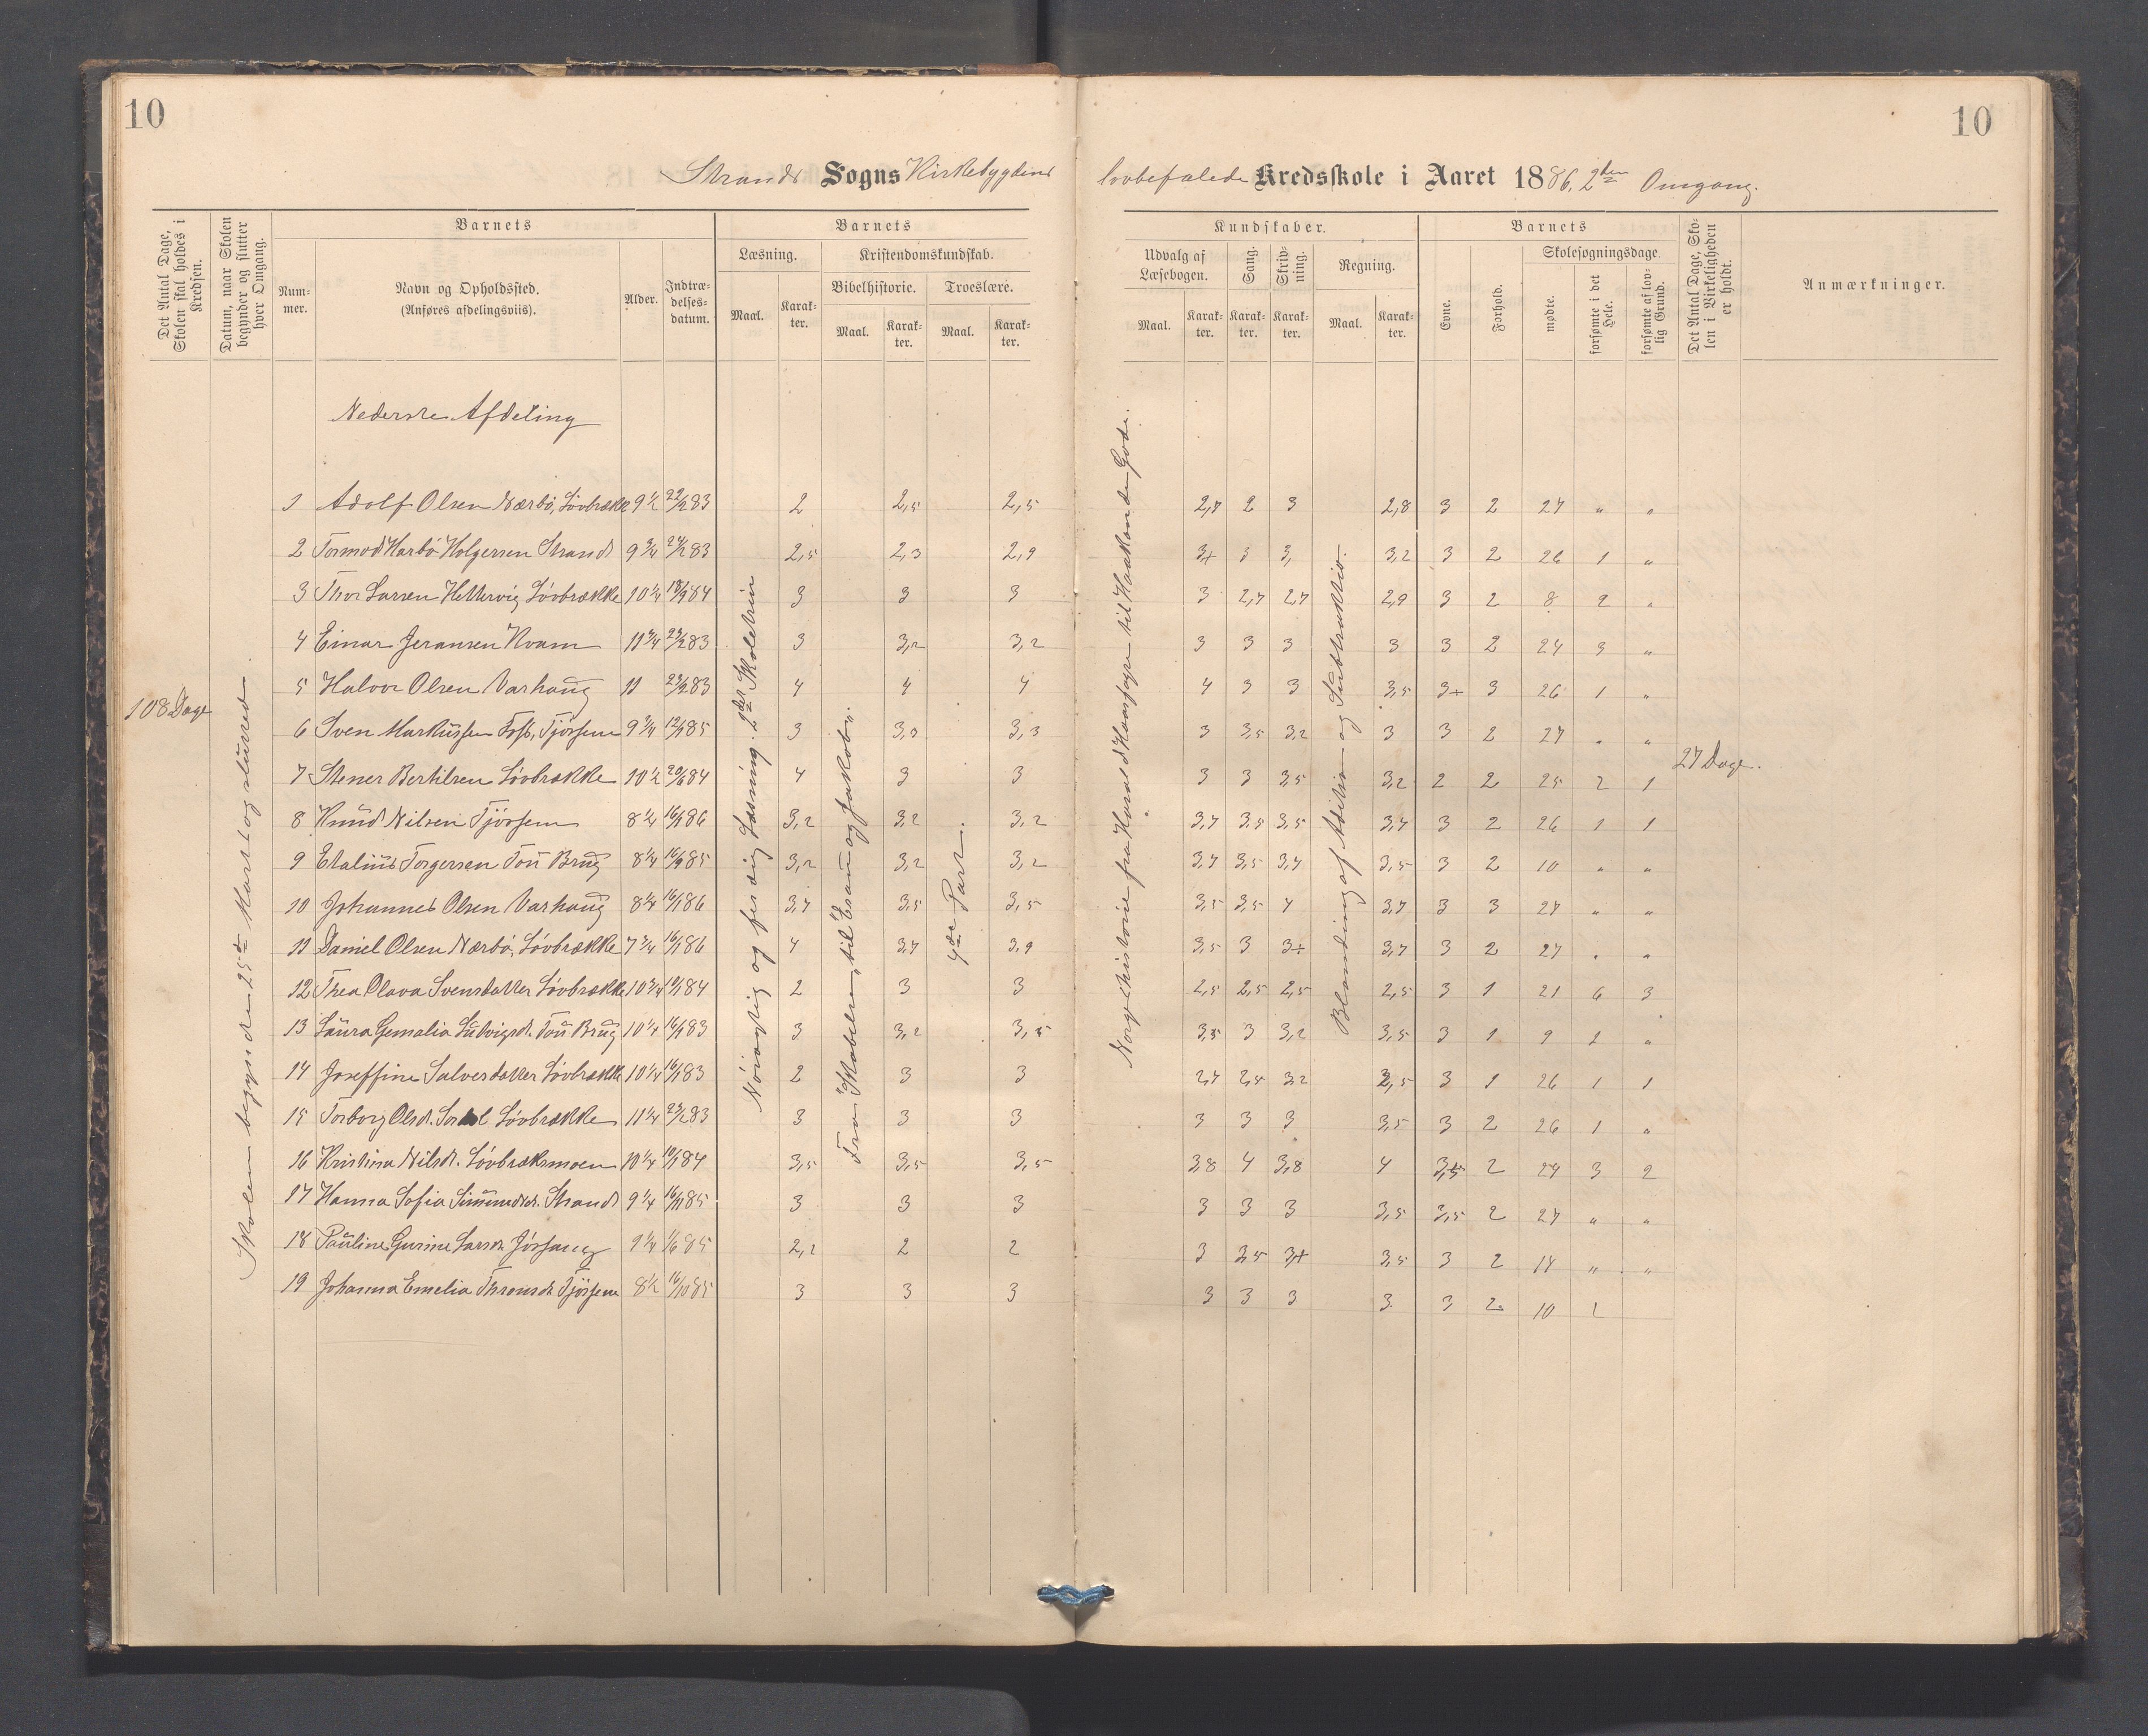 10
10
Strands Sogns Kirkebygdens lovbefalede Kredsskole i Aaret 1886, 2den Omgang.
Det Antal Dage, Skolen skal holdes i Kredsen.
Datum, naar Skolen begynder og slutter hver Omgang.
Barnets
Nummer.
Navn og Opholdssted.
(Anføres afdelingsviis).
Alder.
Indtrædelsesdatum.
Barnets
Læsning.
Maal.
Karakter.
Kristendomskundskab.
Bibelhistorie.
Maal.
Karakter.
Troeslære.
Maal.
Karakter.
Kundskaber.
Udvalg af Læsebogen.
Maal.
Karakter.
Sang.
Karakter.
Skrivning.
Karakter.
Regning.
Maal.
Karakter.
Barnets
Evne.
Forhold.
Skolesøgningsdage.
mødte.
forsømte i det Hele.
forsømte af lovlig Grund.
Det Antal Dage, Skolen i Virkeligheden er holdt.
Anmærkninger.
Nederste Afdeling
108 Dage
Skolen begyndte 25de Marts og slutted
Nøiagtig og færdig Læsning. 2det Skoletrin
Fra Skabelsen til Esau og Jakob.
4de Part.
Norges historie fra Harald Haarfagre til Haakon den Gode.
Blanding af Addition og Subtraktion.
27 Dage.
1 Adolf Olsen Nærbö, Lövbrække 9½ 22/2 83 2 2,5 2,5 2,7 2 3 2,8 3 2 27 " "
2 Tormod Harbö Holgersen Strand 9¾ 24/2 83 2,5 2,3 2,9 3+ 3 3, 3,2 3 2 26 1 "
3 Thor Larsen Hettervig Lövbrække 10¼ 18/9 84 3 3 3 3 2,7 2,7 2,9 3 2 8 2 "
4 Einar Jeransen Kvam 11¾ 23/2 83 3 3,2 3,2 3 3 3 3 3 2 24 3 "
5 Halvor Olsen Varhaug 11 23/2 83 4 4 4 4 3 3 3,5 3+ 3 26 1 "
6 Sven Markussen Fosb, Tjössem 9¾ 12/1 85 3 3,3 3,3 3 3,5 3,2 3 3 2 27 " "
7 Stener Bertilsen Lövbrække 10½ 20/6 84 4 3 3 3 3 3,5 3,2 2 2 25 2 1
8 Knud Nilsen Tjössem 8¼ 16/1 86 3,2 3,2 3,2 3,7 3,5 3,5 3,7 3 2 26 1 1
9 Etalius Torgersen Tou Brug 8¼ 16/9 85 3,2 3,2 3,2 3,7 3,5 3,7 3,5 3 2 10 " "
10 Johannes Olsen Varhaug 8¼ 16/1 86 3,7 3,5 3,5 3,5 3,5 4 3,7 3 3 27 " "
11 Daniel Olsen Nærbö, Lövbrække 7¾ 16/1 86 4 3,7 3,9 3,5 3 3+ 3,7 3 2 27 " "
12 Thea Olava Svensdatter Lövbrække 10¾ 10/1 84 2 3 3 2,5 2,5 2,5 2,5 3 1 21 6 3
13 Laura Gemalia Ludvigsd. Tou Brug 10¼ 16/1 83 3 3,2 3,5 3,5 3 3,2 3,5 3 1 9 1 "
14 Joseffine Salvesdatter Lövbrække 10¼ 16/1 83 2 3 3 2,7 2,5 3,2 2,5 3 1 26 1 1
15 Torborg Olsd. Lövbrække 11¼ 23/2 83 3 3 3 3 3 3 3,5 3 2 26 1 "
16 Kristina Nilsd. Lövbræksmoen 10¼ 10/1 84 3,5 3,5 3,5 3,8 4 3,8 4 3,5 2 24 3 2
17 Hanna Sofia Simundsd. Strand 9¼ 16/11 85 3 3 3 3 3 3 3,5 3,5 2 27 " "
18 Pauline Gurine Larsd. Jössang 9¼ 1/6 85 2,2 2 2 3 3,5 3+ 3,5 3 2 14 " "
19 Johanna Emelia Thronsd. Tjössem 8½ 16/10 85 3 3 3 3 3 3 3 3 2 10 1